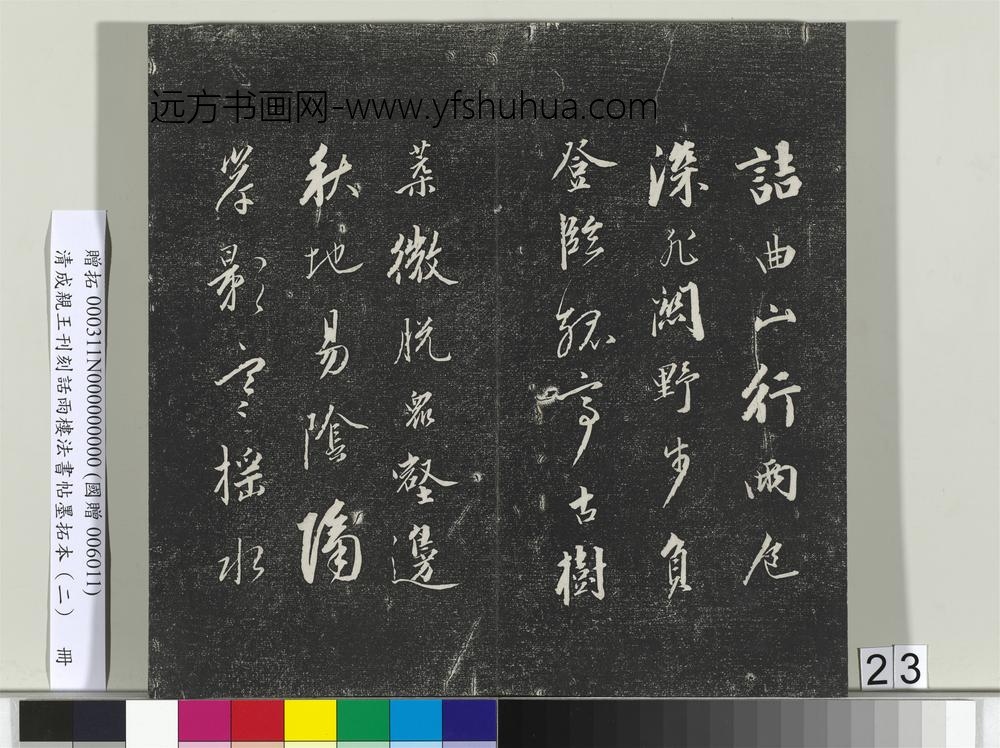 远方书画网-www.yfshuhua.com
詰曲山行兩
深野步負
登臨亭古樹
葉微脫眾壑邊
秋地易陰隔
影搖水
贈拓 000311N000000000(國贈 006011)
清成親王刊刻話雨樓法書帖墨拓本(二) 冊
23